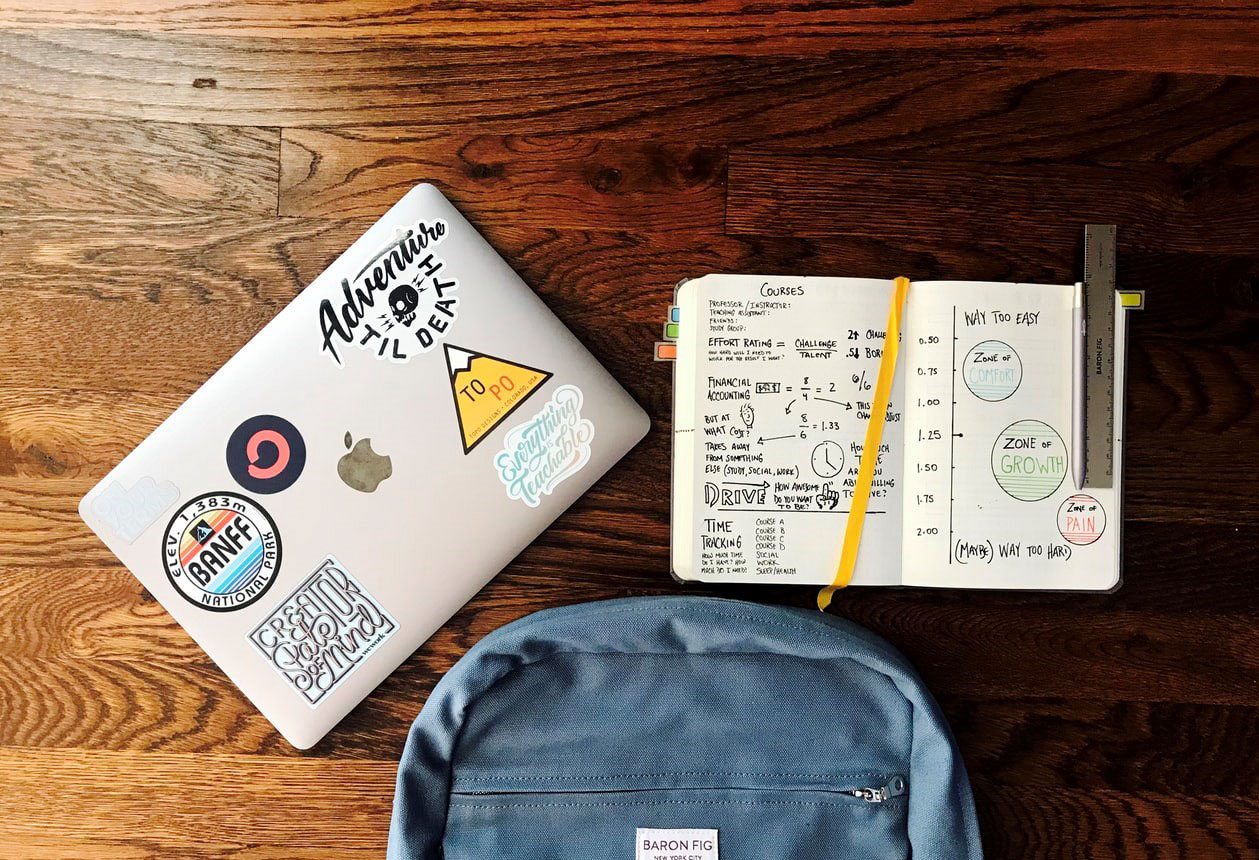 Adventure
'TIL DEATH
TO PO
TOPO DESIGNS - COLORADO, USA
Everything
is
Teachable
ELEV. 1,383m
BANFF
NATIONAL PARK
CREATOR
State
OF Mind
wework
COURSES
PROFESSOR / INSTRUCTOR:
TEACHING ASSISTANT:
FRIENDS:
STUDY GROUP:
EFFORT RATING = CHALLENGE
TALENT
HOW HARD WILL I NEED TO
WORK FOR THE RESULT I WANT?
2↑
.5↓
FINANCIAL
ACCOUNTING
$$$ = 8/4 = 2
6/6
THIS
BUT AT
WHAT COST?
8/6 = 1.33
TAKES AWAY
FROM SOMETHING
ELSE (STUDY, SOCIAL, WORK)
DRIVE
HOW AWESOME
DO YOU WANT
TO BE?
TIME
TRACKING
HOW MUCH TIME
DO I HAVE? HOW
MUCH DO I NEED?
COURSE A
COURSE B
COURSE C
COURSE D
SOCIAL
WORK
SLEEP/HEALTH
WAY TOO EASY
0.50
0.75
1.00
1.25
1.50
1.75
2.00
ZONE OF
COMFORT
ZONE OF
GROWTH
ZONE OF
PAIN
(MAYBE) WAY TOO HARD
BARON FIG
BARON FIG
NEW YORK CITY